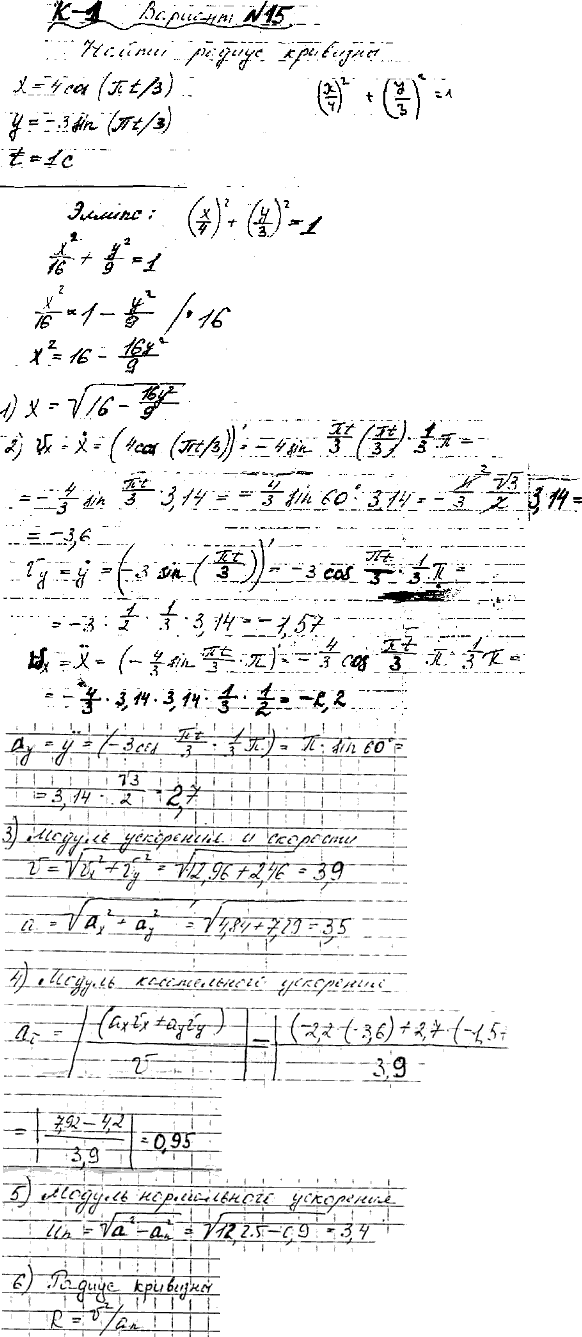 К-1 Вариант №15
Найти радиус кривизны
x = 4cos (πt/3)
(x/4)² + (y/3)² = 1
y = -3 sin (πt/3)
t = 1c
Эллипс: (x/4)² + (y/3)² = 1
x²/16 + y²/9 = 1
x²/16 = 1 - y²/9 / · 16
x² = 16 - 16y²/9
1) x = √(16 - 16y²/9)
2) Vx = ẋ = (4cos (πt/3))' = -4 sin πt/3 (πt/3) · 1/3 π =
= -4/3 sin πt/3 · 3,14 = -4/3 sin 60° · 3,14 = -4/3 √3/2 3,14 =
= -3,6
Vy = ẏ = (-3 sin (πt/3))' = -3 cos πt/3 · 1/3 π =
= -3 · 1/2 · 1/3 · 3,14 = -1,57
= ẍ = (-4/3 sin πt/3 · π)' = -4/3 cos πt/3 · π · 1/3 π =
= -4/3 · 3,14 · 3,14 · 1/3 · 1/2 = -2,2
ay = ÿ = (-3cos πt/3 · 1/3 π) = π · sin 60° =
= 3,14 · √3/2 = 2,7
3) Модуль ускорения и скорости
V = √(Vx² + Vy²) = √(12,96 + 2,46) = 3,9
a = √(ax² + ay²) = √(4,84 + 7,29) = 3,5
4) Модуль касательного ускорения
aτ = |(axVx + ayVy)/V| = |(-2,2 · (-3,6) + 2,7 · (-1,5/3,9
= |(7,92 - 4,2)/3,9| = 0,95
5) Модуль нормального ускорения
an = √(a² - an²) = √(12,25 - 0,9) = 3,4
6) Радиус кривизны
R = V²/an